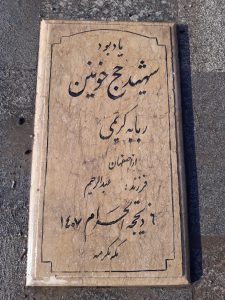 یادبود
شهید حج خونین
ربابه کریمی
از اصفهان
فرزند: عبدالرحیم
۶ ذیحجة الحرام ۱۴۰۷
مکه مکرمه